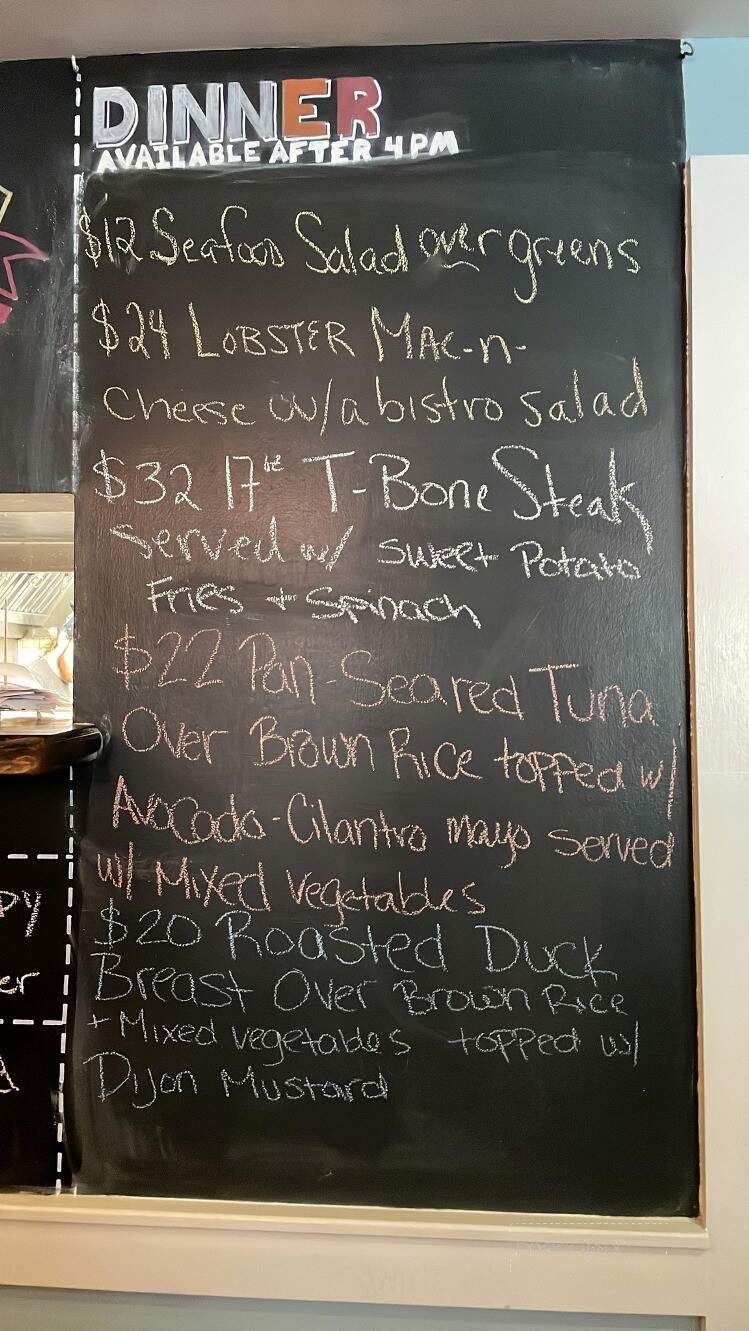 DINNER
AVAILABLE AFTER 4PM
$12 Seafood Salad over greens
$24 LOBSTER MAC-n-
Cheese w/a bistro salad
$32 17oz T-Bone Steak
Served w/ sweet Potato
Fries + Spinach
$22 Pan-Seared Tuna
Over Brown Rice topped w/
Avocado-Cilantro mayo served
w/ Mixed vegetables
$20 Roasted Duck
Breast Over Brown Rice
+ Mixed vegetables topped w/
Dijon Mustard